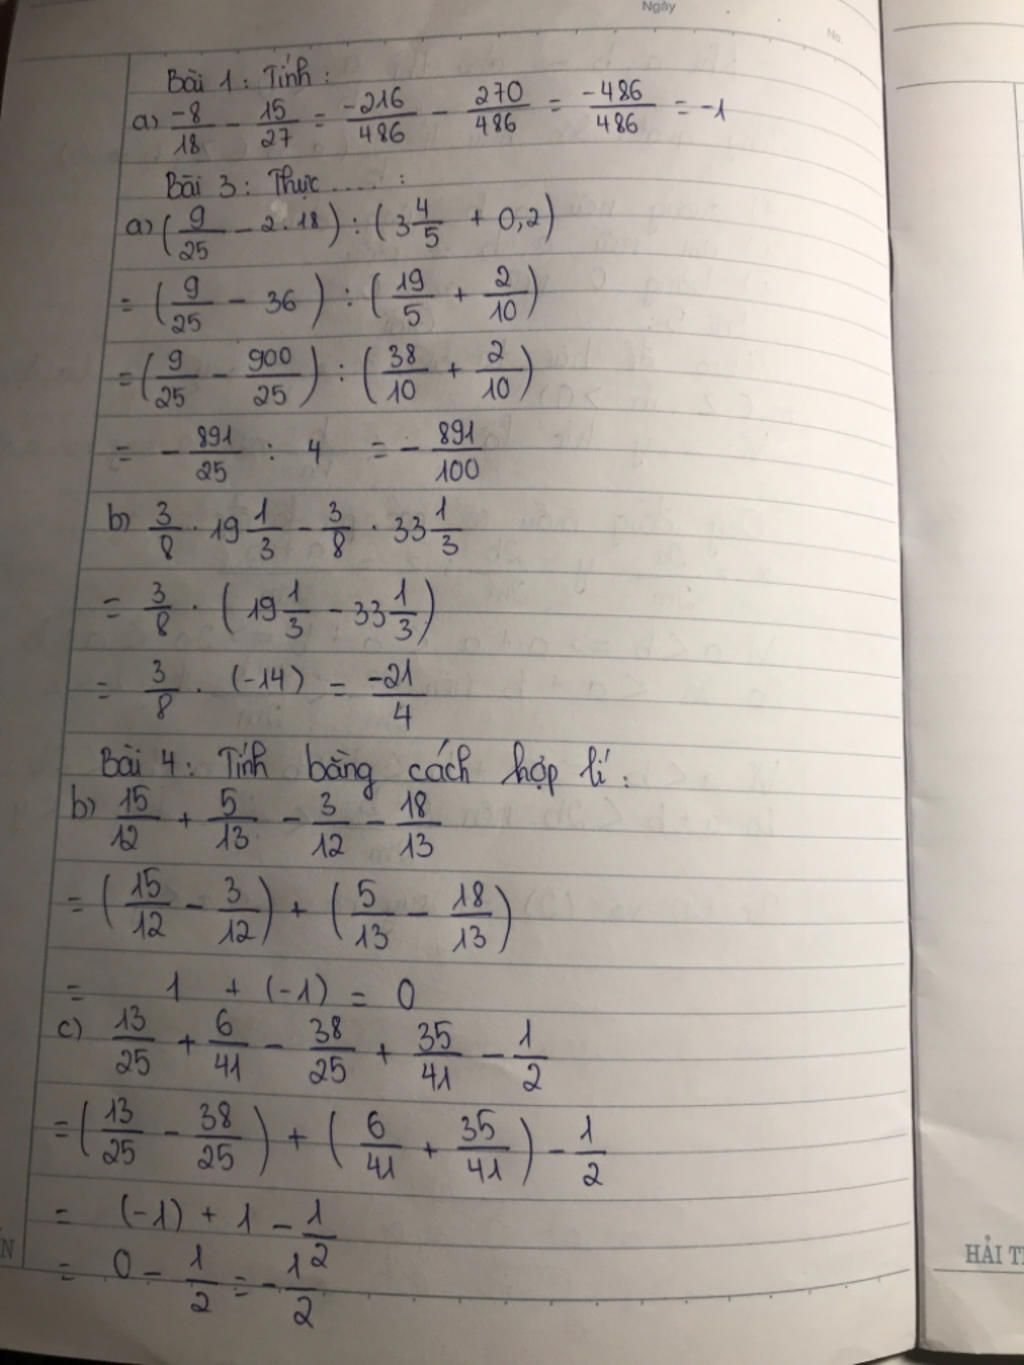 Ngày
No.
Bài 1: Tính:
a) -8/18 - 15/27 = -216/486 - 270/486 = -486/486 = -1
Bài 3: Thực .....:
a) (9/25 - 2.18) : (3 4/5 + 0,2)
= (9/25 - 36) : (19/5 + 2/10)
= (9/25 - 900/25) : (38/10 + 2/10)
= - 891/25 : 4 = - 891/100
b) 3/8 . 19 1/3 - 3/8 . 33 1/3
= 3/8 . (19 1/3 - 33 1/3)
= 3/8 . (-14) = -21/4
Bài 4: Tính bằng cách hợp lí:
b) 15/12 + 5/13 - 3/12 - 18/13
= (15/12 - 3/12) + (5/13 - 18/13)
= 1 + (-1) = 0
c) 13/25 + 6/41 - 38/25 + 35/41 - 1/2
= (13/25 - 38/25) + (6/41 + 35/41) - 1/2
= (-1) + 1 - 1/2
= 0 - 1/2 = - 1/2
HẢI T